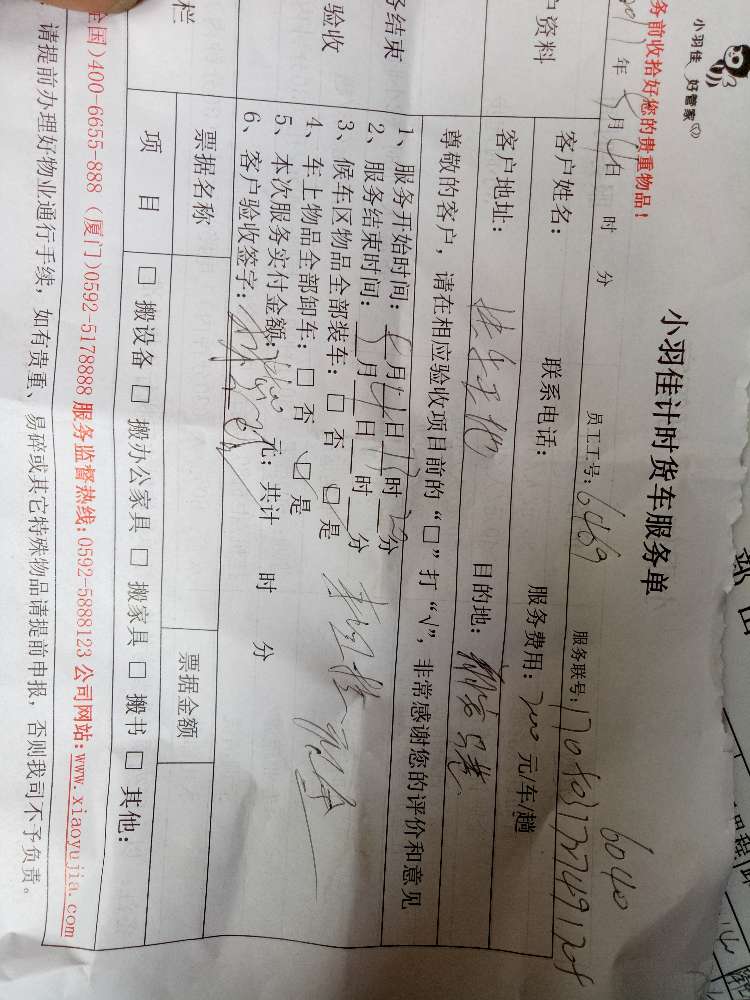 小羽佳 好管家
务前收拾好您的贵重物品！
小羽佳计时货车服务单
年 月 日 时 分 员工工号：6469 服务联号：
6040
户资料
客户姓名： 联系电话： 服务费用：200 元/车/趟
客户地址： 目的地：
务结束
验收
尊敬的客户，请在相应验收项目前的“□”打“√”，非常感谢您的评价和意见
1、服务开始时间： 月 日 时 分
2、服务结束时间： 月 日 时 分
3、候车区物品全部装车：□ 否 □ 是
4、车上物品全部卸车：□ 否 □ 是
5、本次服务实付金额： 元；共计 时 分
6、客户验收签字：
栏
票据名称 票据金额
项 目 □ 搬设备 □ 搬办公家具 □ 搬家具 □ 搬书 □ 其他：
全国)400-6655-888 (厦门)0592-5178888 服务监督热线:0592-5888123 公司网站:www.xiaoyujia.com
请提前办理好物业通行手续，如有贵重、易碎或其它特殊物品请提前申报，否则我司不予负责。